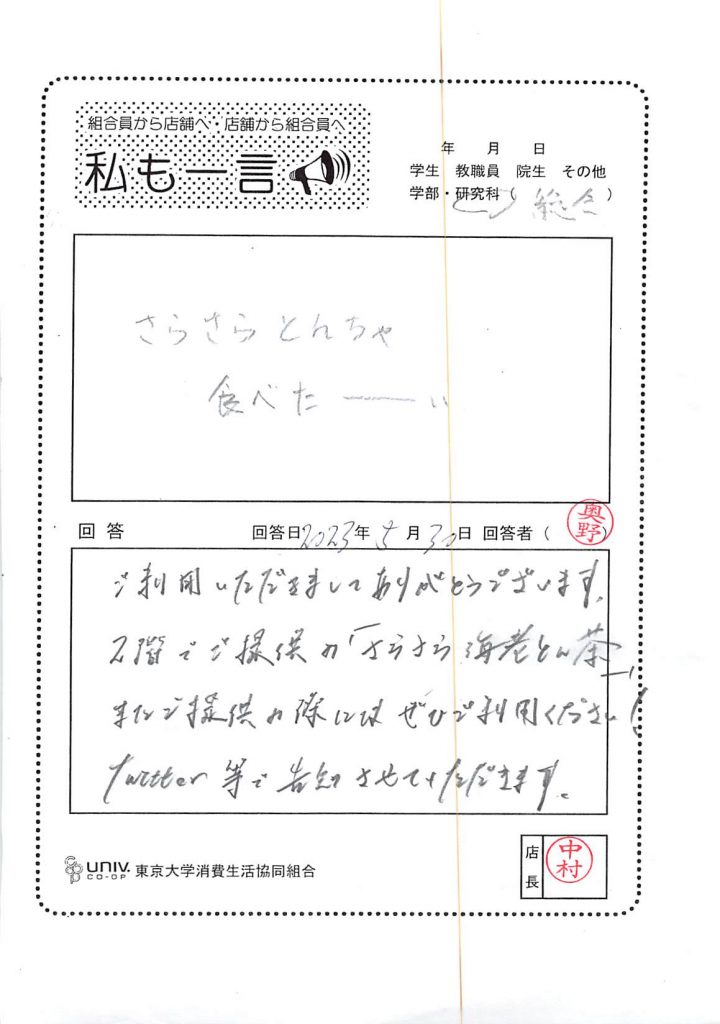 組合員から店舗へ・店舗から組合員へ
私も一言
年 月 日
学生 教職員 院生 その他
学部・研究科( 総合 )
さらさらとんちゃ
食べたーーい
回答 回答日2023年5月30日 回答者( 奥野 )
ご利用いただきましてありがとうございます。
2階でご提供の「さらさら海老とん茶」
またご提供の際にはぜひご利用ください!
Twitter等で告知させていただきます。
UNIV. CO-OP 東京大学消費生活協同組合
店長 中村